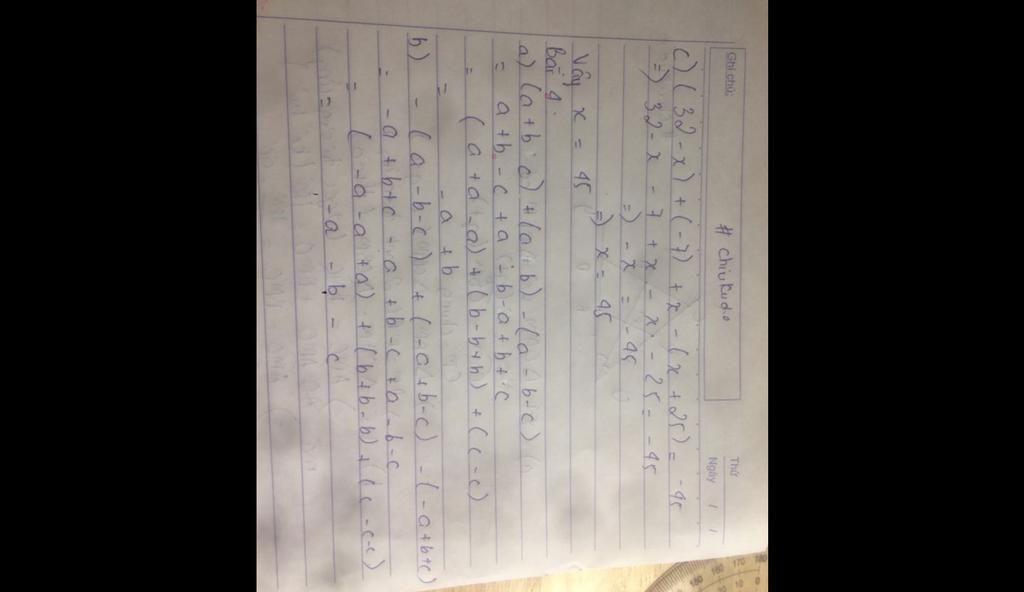 Ghi chú:
# chiukudio
Thứ
Ngày / /
c) (32 - x) + (-7) + x - (x + 25) = -45
=) 32 - x - 7 + x - x - 25 = -45
=) - x = -45
=) x = 45
Vậy x = 45
Bài 4:
a) (a + b - c) + (a - b) - (a - b - c)
= a + b - c + a - b - a + b + c
= (a + a - a) + (b - b + b) + (c - c)
= a + b
b) - (a - b - c) + (-a + b - c) - (-a + b + c)
= -a + b + c - a + b - c + a - b - c
= (-a - a + a) + (b + b - b) + (c - c - c)
= -a - b - c